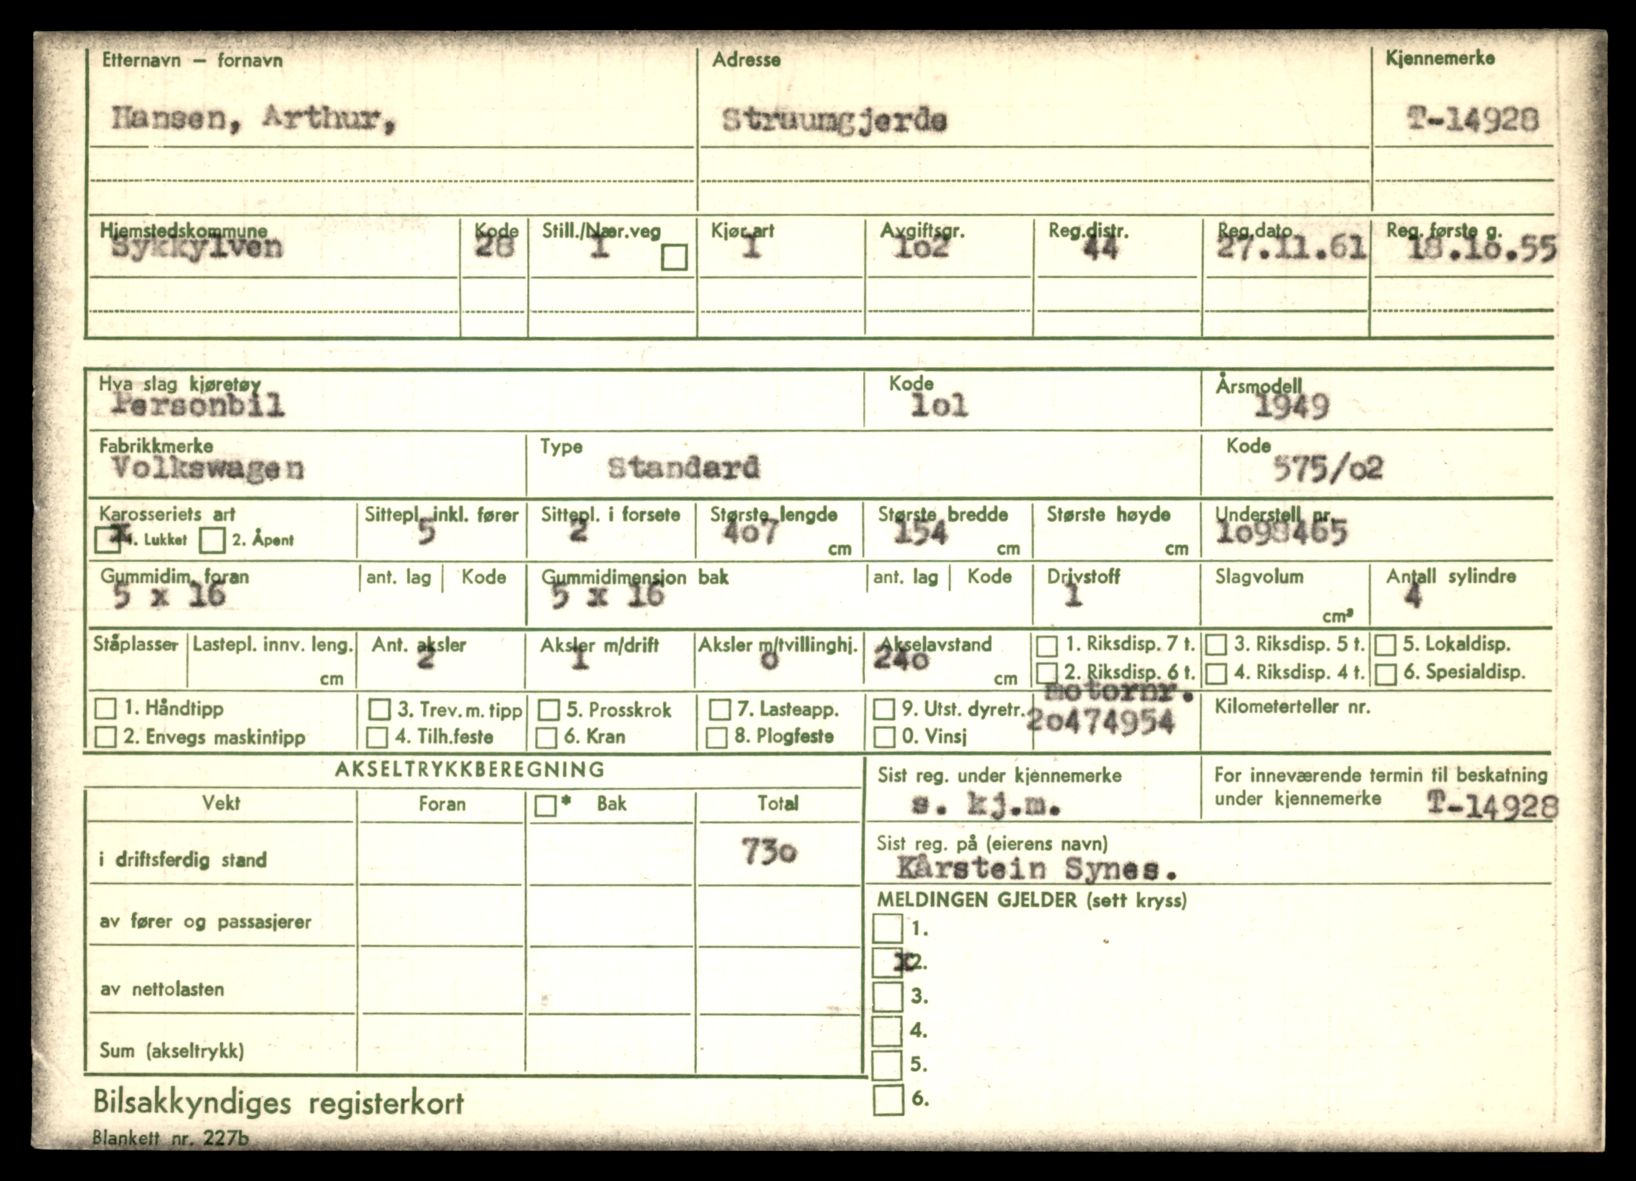 Etternavn – fornavn Adresse Kjennemerke
Hansen, Arthur, Straumgjerde T-14928
Hjemstedskommune Kode Still./Nær.veg Kjør.art Avgiftsgr. Reg.distr. Reg.dato. Reg. første g.
Sykkylven 28 1 1 1o2 44 27.11.61 18.1o.55
Hva slag kjøretøy Kode Årsmodell
Personbil 1o1 1949
Fabrikkmerke Type Kode
Volkswagen Standard 575/o2
Karosseriets art Sittepl. inkl. fører Sittepl. i forsete Største lengde Største bredde Største høyde Understell nr.
x 1. Lukket 2. Åpent 5 2 4o7 cm 154 cm cm 1o98465
Gummidim. foran ant. lag Kode Gummidimension bak ant. lag Kode Drivstoff Slagvolum Antall sylindre
5 x 16 5 x 16 1 cm³ 4
Ståplasser Lastepl. innv. leng. Ant. aksler Aksler m/drift Aksler m/tvillinghj. Akselavstand 1. Riksdisp. 7 t. 3. Riksdisp. 5 t. 5. Lokaldisp.
cm 2 1 o 24o cm 2. Riksdisp. 6 t. 4. Riksdisp. 4 t. 6. Spesialdisp.
motornr.
1. Håndtipp 3. Trev. m. tipp 5. Prosskrok 7. Lasteapp. 9. Utst. dyretr. 2o474954 Kilometerteller nr.
2. Envegs maskintipp 4. Tilh.feste 6. Kran 8. Plogfeste 0. Vinsj
AKSELTRYKKBEREGNING Sist reg. under kjennemerke For inneværende termin til beskatning
Vekt Foran * Bak Total s. kj.m. under kjennemerke T-14928
i driftsferdig stand 73o Sist reg. på (eierens navn)
Kårstein Synes.
av fører og passasjerer MELDINGEN GJELDER (sett kryss)
1.
x 2.
av nettolasten 3.
4.
Sum (akseltrykk) 5.
Bilsakkyndiges registerkort 6.
Blankett nr. 227b